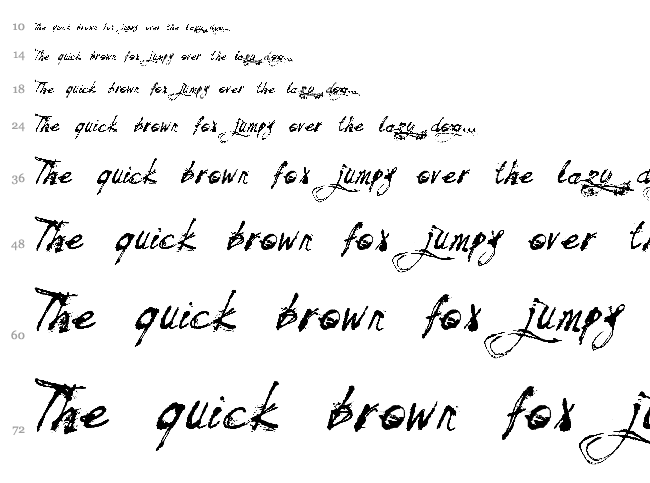 10 The quick brown fox jumpy over the lazy dog...
14 The quick brown fox jumpy over the lazy dog...
18 The quick brown fox jumpy over the lazy dog...
24 The quick brown fox jumpy over the lazy dog...
36 The quick brown fox jumpy over the lazy d
48 The quick brown fox jumpy over t
60 The quick brown fox jumpy
72 The quick brown fox j